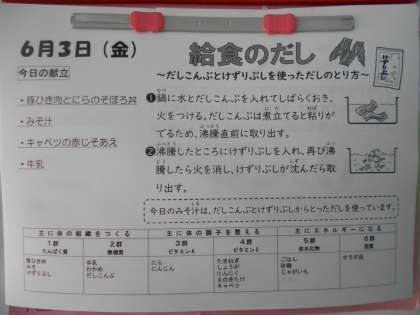 6月3日（金）
給食のだし
～だしこんぶとけずりぶしを使っただしのとり方～
今日の献立
・豚ひき肉とにらのそぼろ丼
・みそ汁
・キャベツの赤じそあえ
・牛乳
❶鍋に水とだしこんぶを入れてしばらくおき、
火をつける。だしこんぶは煮立てると粘りが
でるため、沸騰直前に取り出す。
❷沸騰したところにけずりぶしを入れ、再び沸
騰したら火を消し、けずりぶしが沈んだら取
り出す。
今日のみそ汁は、だしこんぶとけずりぶしからとっただしを使っています。
主に体の組織をつくる 主に体の調子を整える 主にエネルギーになる
1群 2群 3群 4群 5群 6群
たんぱく質 無機質 ビタミンA ビタミンC 炭水化物 脂質
豚ひき肉 牛乳 にら たまねぎ ごはん サラダ油
みそ わかめ にんじん しょうが 砂糖
けずりぶし だしこんぶ にんにく じゃがいも
えのきたけ
キャベツ